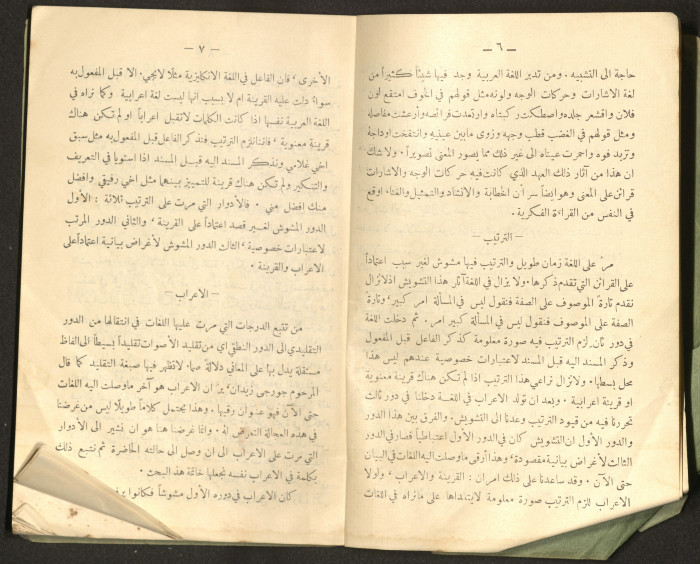 — ٦ —
حاجة الى التشبيه . ومن تدبر اللغة العربية وجد فيها شيئاً كثيراً من
لغة الاشارات وحركات الوجه ولونه مثل قولهم في الخوف امتقع لون
فلان واقشعر جلده واصطكت ركبتاه وارتعدت فرائصه وأرعشت مفاصله
ومثل قولهم في الغضب قطب وجهه وزوى مابين عينيه وانتفخت اوداجه
وتزبد فوه واحمرت عيناه الى غير ذلك مما يصور المعنى تصويراً . ولا شك
ان هذا من آثار ذلك العهد الذي كانت فيه حركات الوجه والاشارات
قرائن على المعنى وهو ايضاً سر أن الخطابة والانشاد والتمثيل والغناء اوقع
في النفس من القراءة الفكرية .
— الترتيب —
مر على اللغة زمان طويل والترتيب فيها مشوش لغير سبب اعتماداً
على القرائن التي تقدم ذكرها . ولا يزال في اللغة آثار هذا التشويش اذ لانزال
نقدم تارة الموصوف على الصفة فنقول ليس في المسألة امر كبير ، وتارة
الصفة على الموصوف فنقول ليس في المسألة كبير امر . ثم دخلت اللغة
في دور ثان لزم الترتيب فيه صورة معلومة كذكر الفاعل قبل المفعول
وذكر المسند اليه قبل المسند لاعتبارات خصوصية عندهم ليس هذا
محل بسطها . ولا نزال نراعي هذا الترتيب اذا لم تكن هناك قرينة معنوية
او قرينة اعرابية . وبعد ان تولد الاعراب في اللغة دخلنا في دور ثالث
تحررنا فيه من قيود الترتيب وعدنا الى التشويش . والفرق بين هذا الدور
والدور الأول ان التشويش كان في الدور الأول اعتباطياً فصار في الدور
الثالث لأغراض بيانية مقصودة ، وهذا أرقى ما وصلت اليه اللغات في البيان
حتى الآن . وقد ساعدنا على ذلك امران : القرينة والاعراب ، ولولا
الاعراب للزم الترتيب صورة معلومة لايتعداها على مانراه في اللغات
— ٧ —
الأخرى ، فان الفاعل في اللغة الانكليزية مثلاً لايجي . الا قبل المفعول به
سواء دلت عليه القرينة ام لا بسبب انها ليست لغة اعرابية وكما نراه في
اللغة العربية نفسها اذا كانت الكلمات لاتقبل اعراباً او لم تكن هناك
قرينة معنوية ، فاننا نلزم الترتيب فنذكر الفاعل قبل المفعول به مثل سبق
اخي غلامي ونذكر المسند اليه قبل المسند اذا استويا في التعريف
والتنكير ولم تكن هناك قرينة للتمييز بينهما مثل اخي رفيقي وافضل
منك افضل مني . فالأدوار التي مرت على الترتيب ثلاثة : الأول
الدور المشوش لغير قصد اعتماداً على القرينة ، والثاني الدور المرتب
لاعتبارات خصوصية ، الثالث الدور المشوش لأغراض بيانية اعتماداً على
الاعراب والقرينة .
— الاعراب —
من تتبع الدرجات التي مرت عليها اللغات في انتقالها من الدور
التقليدي الى الدور النطقي اي من تقليد الأصوات تقليداً بسيطاً الى الفاظ
مستقلة يدل بها على المعاني دلالة صماء لاتظهر فيها صبغة التقليد كما قال
المرحوم جورجي زيدان ، ير ان الاعراب هو آخر ما وصلت اليه اللغات
حتى الآن فهو عنوان رقيها . وهذا يحتمل كلاماً طويلاً ليس من غرضنا
في هذه العجالة التعرض له . وانما غرضنا هنا هو ان نشير الى الأدوار
التي مرت على الاعراب الى ان وصل الى حالته الحاضرة ثم نتبع ذلك
بكلمة في الاعراب نفسه نجعلها خاتمة هذا البحث .
كان الاعراب في دوره الأول مشوشاً فكانوا